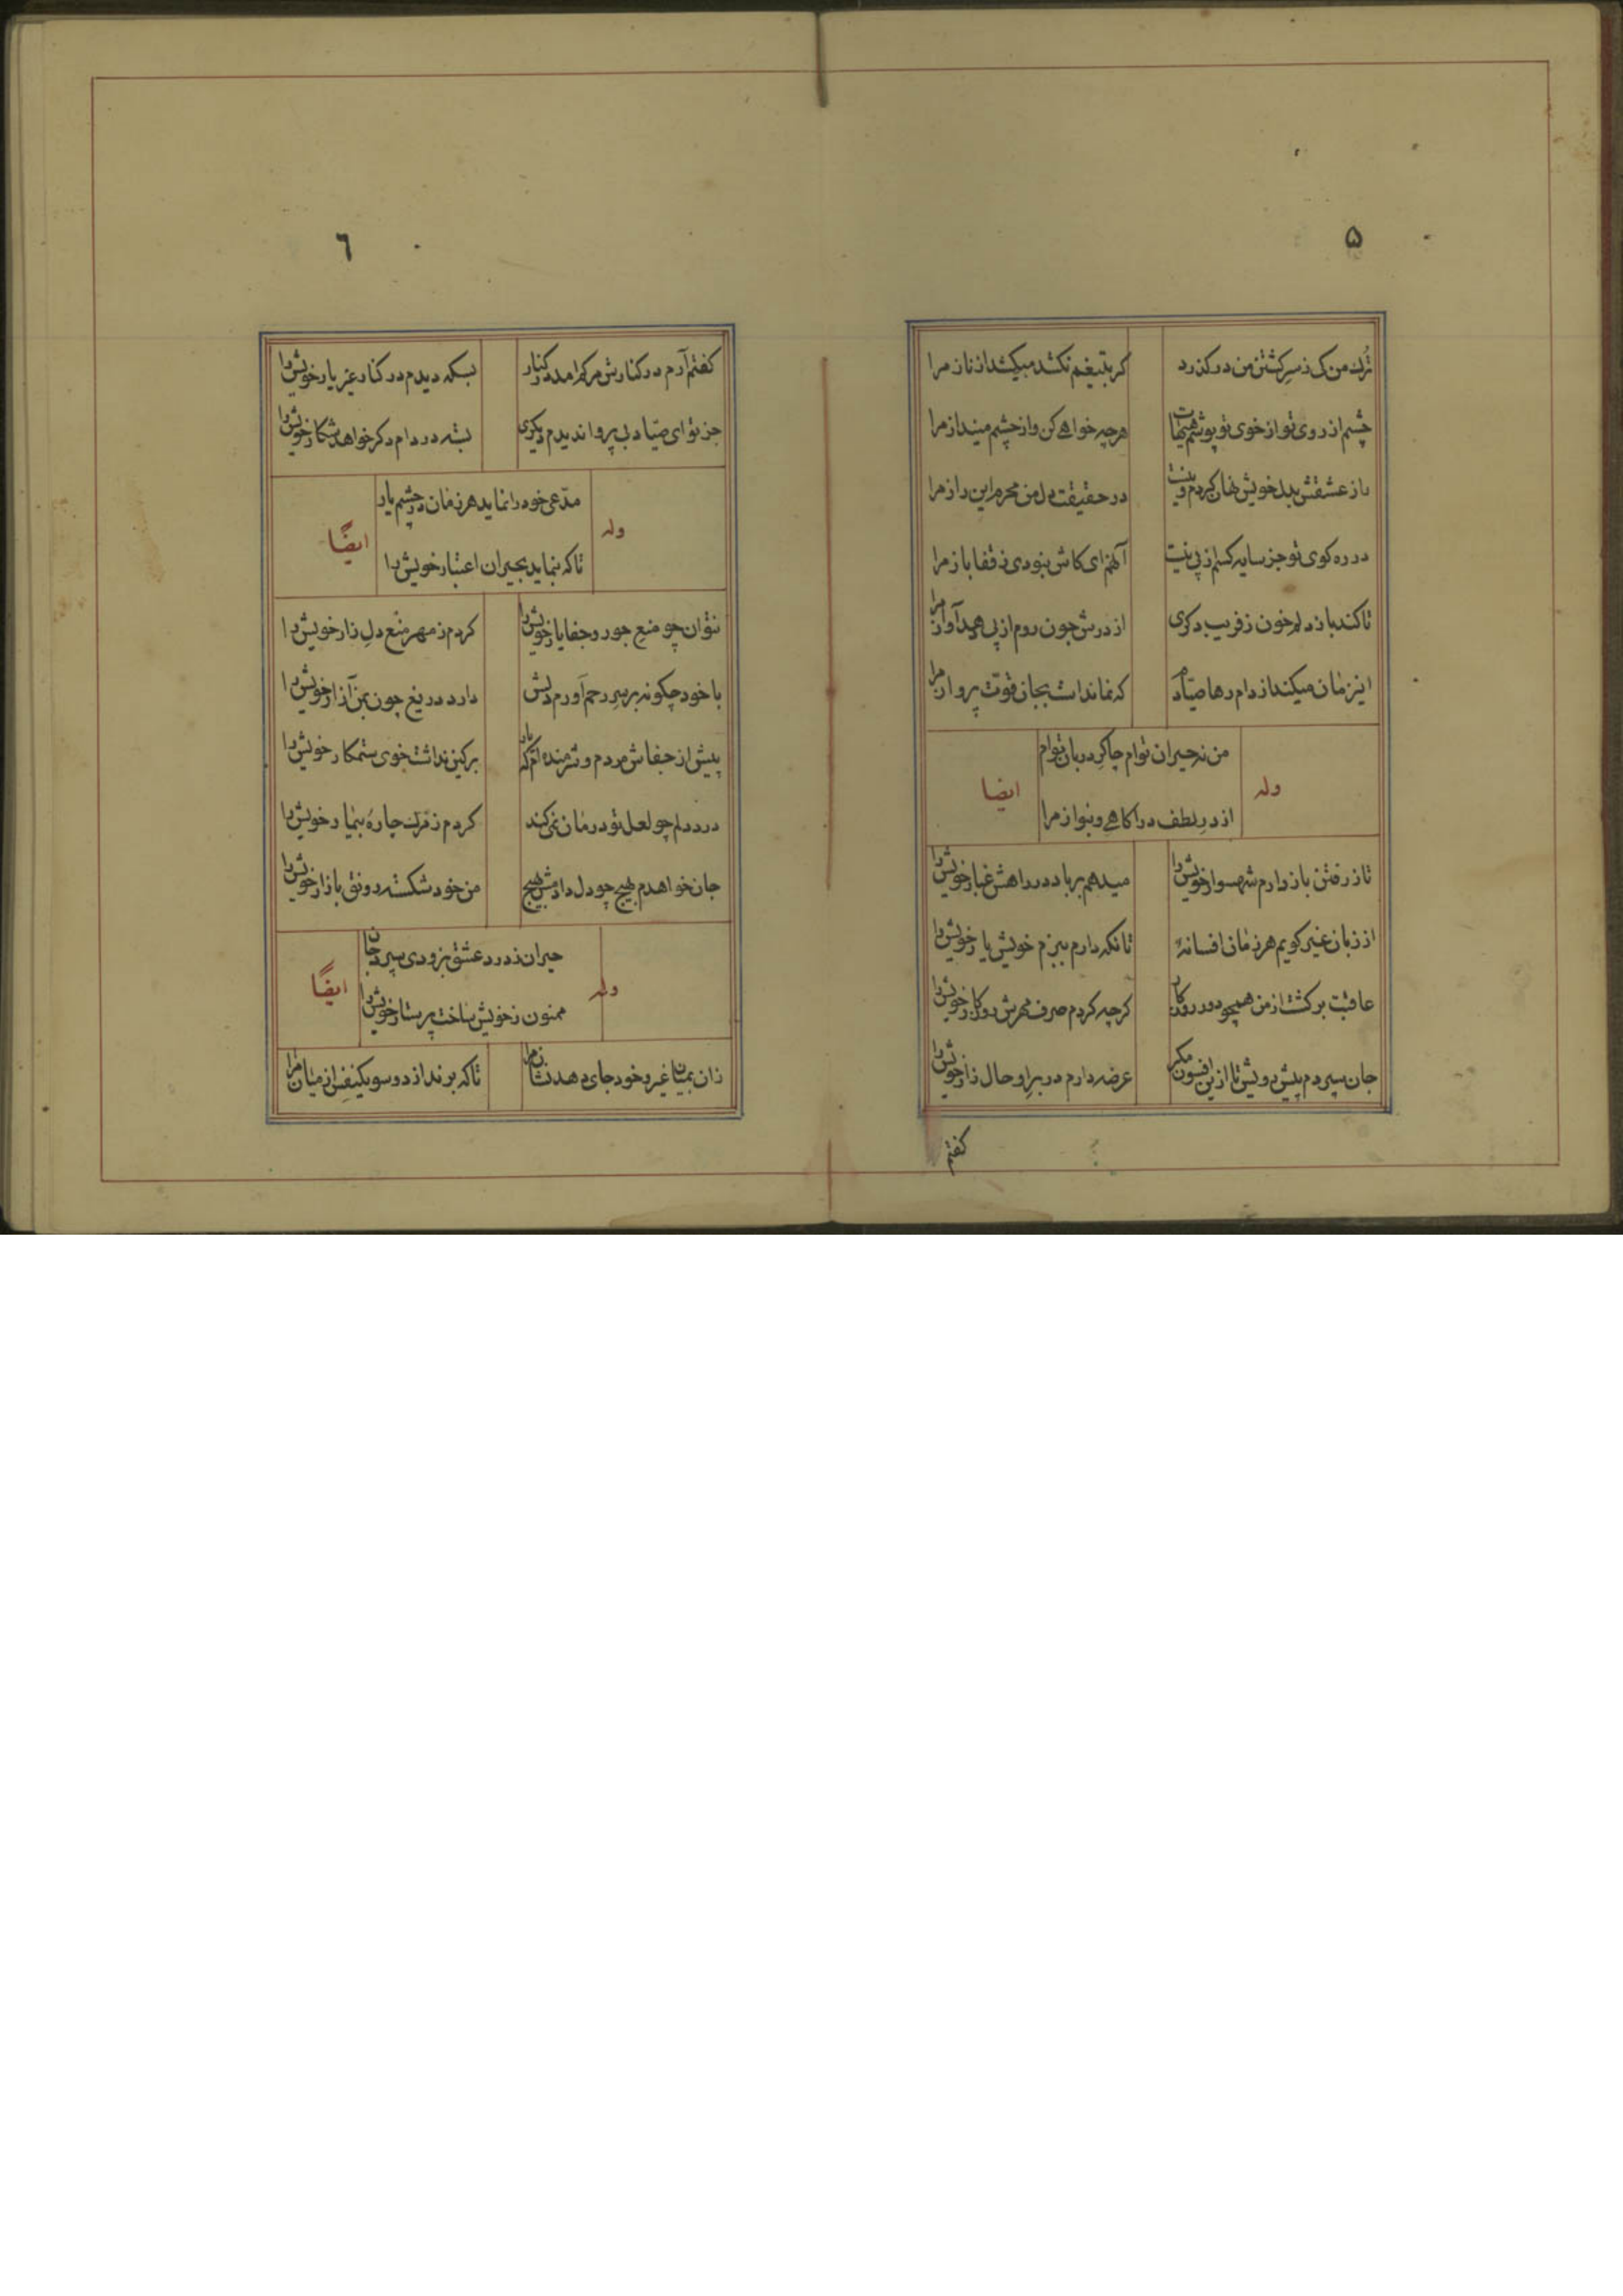 ۵
ترك من کی ز سر کشتن من در کذرد
کر بتیغم نکشد میکشد از ناز مرا
چشم از روی تو از خوی تو پوشم هیهات
هرچه خواهی کن و از چشم مینداز مرا
راز عشقش بدل خویش نهان کردم و نیست
در حقیقت دل من محرم این راز مرا
در ره کوی تو جز سایه کسم از پی نیست
آنهم ای کاش نبودی ز قفا باز مرا
تا کند باز دلم خون ز فریب دکری
از درش چون روم از پی دهد آواز مرا
این زمان میکند از دام رها صیادم
که نماند است بجان قوت پرواز مرا
وله
من نه حیران توام چاکر دربان توام
از در لطف درا کاهی و بنواز مرا
ایضا
تا ز رفتن باز دارم شهسوار خویش را
میدهم بر باد در راهش غبار خویش را
از زبان غیر کویم هر زمانی افسانهٔ
تا نکه دارم ببزم خویش یار خویش را
عاقبت برکشت از من همچو دور روزکار
کرچه کردم صرف مهرش روزکار خویش را
جان سپردم پیش رویش تا ازین افسون مکر
عرضه دارم در بر او حال زار خویش را
کفتم
٦
کفتم آرم در کنارش مرکم امد در کنار
بسکه دیدم در کنار غیر یار خویش را
جز تو ای صیاد بی پروا ندیدم دیکری
بسته در دام دکر خواهد شکار خویش را
وله
مدعی خود را نماید هر زمان در چشم یار
تا که بنماید بحیران اعتبار خویش را
ایضًا
نتوان چو منع جور و جفا یار خویش را
کردم ز مهر منع دل زار خویش را
با خود چکونه بر سر رحم آورم دلش
دارد دریغ چون ز من آزار خویش را
پیش از جفاش مردم و شرمنده ام که یار
بر کین نداشت خوی ستمکار خویش را
درد دلم چو لعل تو درمان نمی کند
کردم ز ترك چارهٔ بیمار خویش را
جان خواهدم بهیچ چو دل دادمش بهیچ
من خود شکسته رونق بازار خویش را
وله
حیران ز درد عشق بزودی سپرد جان
ممنون ز خویش ساخت پرستار خویش را
ایضًا
زان بمیان غیر و خود جای دهد نشان مرا
تا که برند از دو سو یکنفس از میان مرا